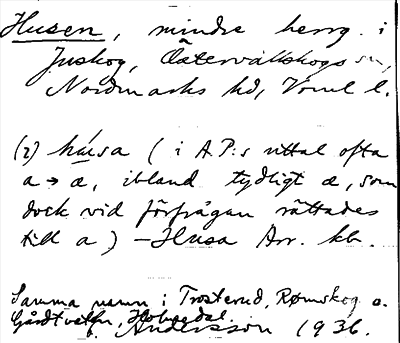 Husen, mindre herrg. i
Juskog, Östervallskogs sn,
Nordmarks hd, Värml l.
(i) húsa ( i A.P:s uttal ofta
a → æ, ibland tydligt æ, som
dock vid förfrågan rättades
till a ) – Husa Arr. kb.
Samma namn i Trosterud, Rømskog o.
Holmedal
Andersson 1936.